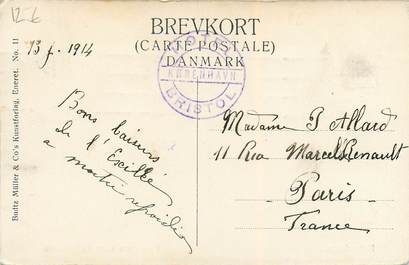 BREVKORT
(CARTE POSTALE)
DANMARK
HOTEL
KØBENHAVN
BRISTOL
13 1914
Bons baisers
de l'
a
Madame P Allard
11 Rue Marcel Renault
Paris
France
Buttz Müller & Co's Kunstforlag. Eneret. No. 11